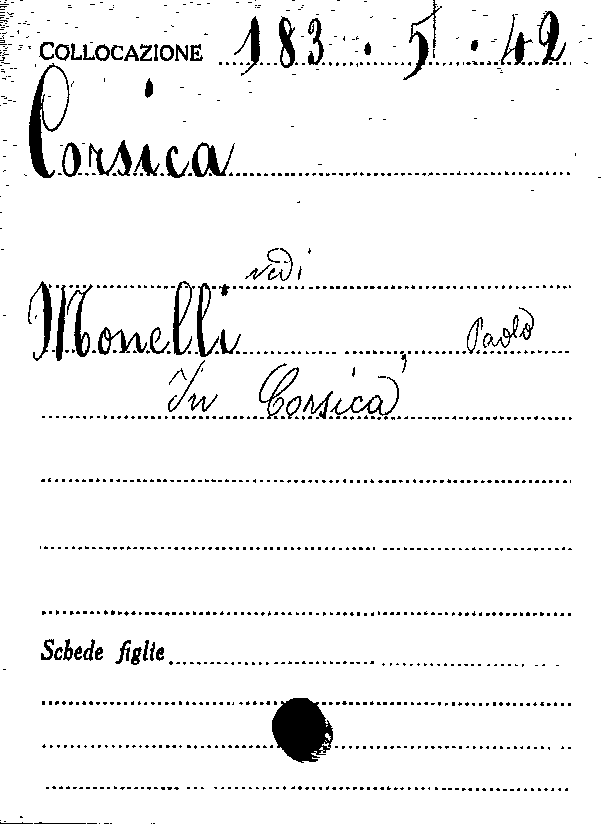 COLLOCAZIONE 183 . 5 . 42
Corsica
vedi
Monelli Paolo
In Corsica
Schede figlie